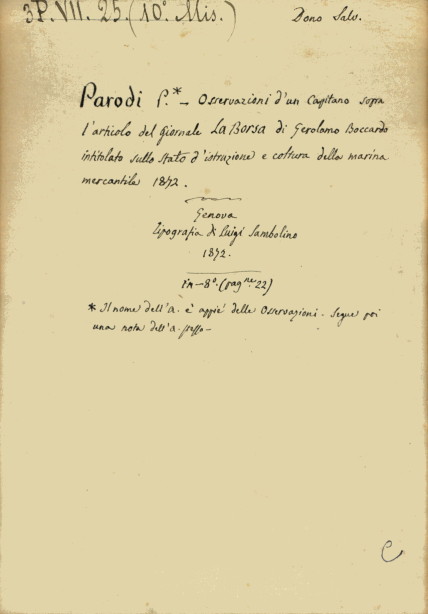 3P. VII. 25. (10º. Mis.)
Dono Salv.
Parodi P.* – Osservazioni d'un Capitano sopra
l'articolo del Giornale La Borsa di Gerolamo Boccardo
intitolato sullo stato d'istruzione e coltura della marina
mercantile 1872.
Genova
Tipografia di Luigi Sambolino
1872.
in-8º. (pagne 22)
* Il nome dell'A. è appiè delle Osservazioni. Segue poi
una nota dell'A. stesso –
C